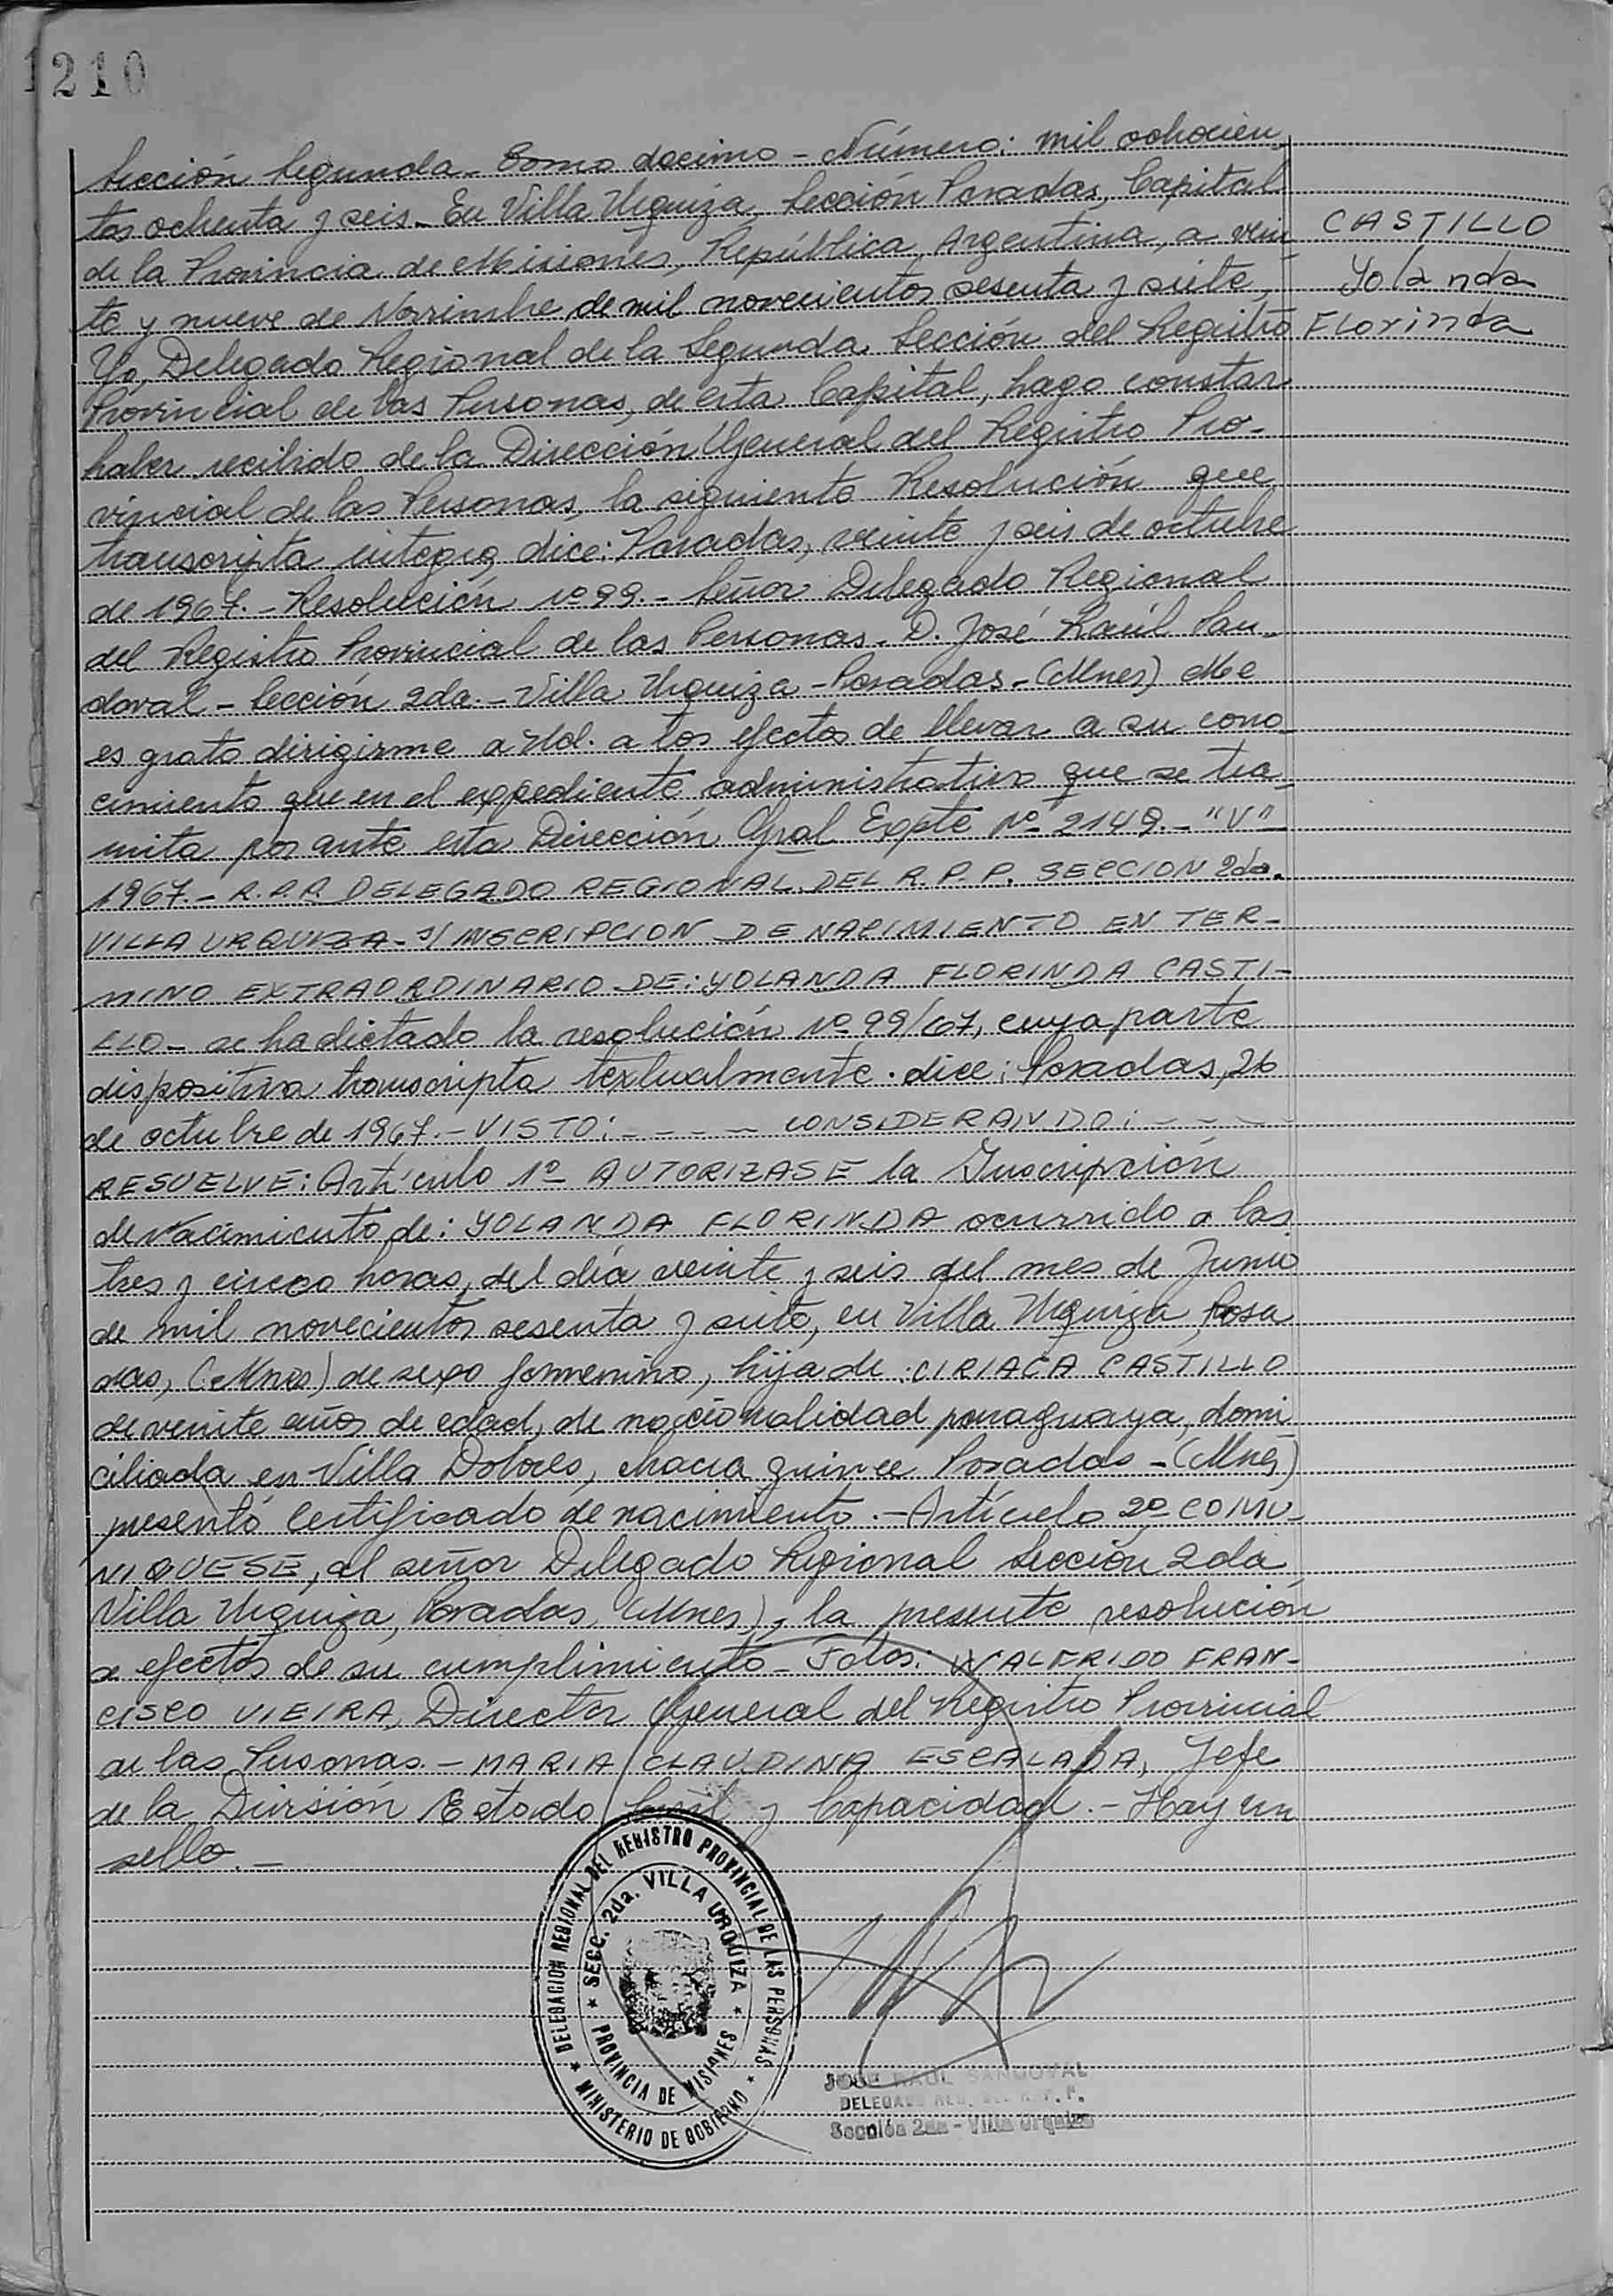 1210
Sección Segunda - Tomo decimo - Número: mil ochocien
tos ochenta y seis - En Villa Urquiza, Sección Posadas, Capital
de la Provincia de Misiones, República Argentina, a vein-
te y nueve de Noviembre de mil novecientos sesenta y siete,
Yo, Delegado Regional de la Segunda Sección del Registro
Provincial de las Personas, de esta Capital, hago constar
haber recibido de la Dirección General del Registro Pro-
vincial de las Personas, la siguiente Resolución que
transcripta integra dice: Posadas, veinte y seis de octubre
de 1967.- Resolución Nº 99.- Señor Delegado Regional
del Registro Provincial de las Personas - D. José Raúl San-
doval - Sección 2da.- Villa Urquiza - Posadas - (Mnes) Me
es grato dirigirme a Ud. a los efectos de llevar a su cono-
cimiento que en el expediente administrativo que se tra-
mita por ante esta Dirección Gral Expte Nº 2149.- "V"-
1967.- R.P.P. DELEGADO REGIONAL DEL R.P.P. SECCION 2da.
VILLA URQUIZA - s/ INSCRIPCION DE NACIMIENTO EN TER-
MINO EXTRAORDINARIO DE: YOLANDA FLORINDA CASTI-
LLO - se ha dictado la resolución Nº 99/67, cuya parte
dispositiva transcripta textualmente dice: Posadas, 26
de octubre de 1967.- VISTO: - - - - CONSIDERANDO: - - - -
RESUELVE: Artículo 1º AUTORIZASE la Inscripción
de Nacimiento de: YOLANDA FLORINDA ocurrido a las
tres y cinco horas, del día veinte y seis del mes de Junio
de mil novecientos sesenta y siete, en Villa Urquiza, Posa
das, (Mnes) de sexo femenino, hija de: CIRIACA CASTILLO
de veinte años de edad, de nacionalidad paraguaya, domi
ciliada en Villa Dolores, chacra quince Posadas - (Mnes)
presentó Certificado de nacimiento.- Artículo 2º COMU-
NIQUESE, al señor Delegado Regional Sección 2da
Villa Urquiza, Posadas, (Mnes), la presente resolución
a efectos de su cumplimiento - Fdos: WALFRIDO FRAN-
CISCO VIEIRA, Director General del Registro Provincial
de las Personas.- MARIA CLAUDINA ESCALADA, Jefe
de la División Estado Civil y Capacidad.- Hay un
sello.-
CASTILLO
Yolanda
Florinda
DELEGACION REGIONAL DEL REGISTRO PROVINCIAL DE LAS PERSONAS
SECC. 2da. VILLA URQUIZA
PROVINCIA DE MISIONES
MINISTERIO DE GOBIERNO
JOSE RAUL SANDOVAL
DELEGADO REG. DEL R. P. P.
Sección 2da - Villa Urquiza